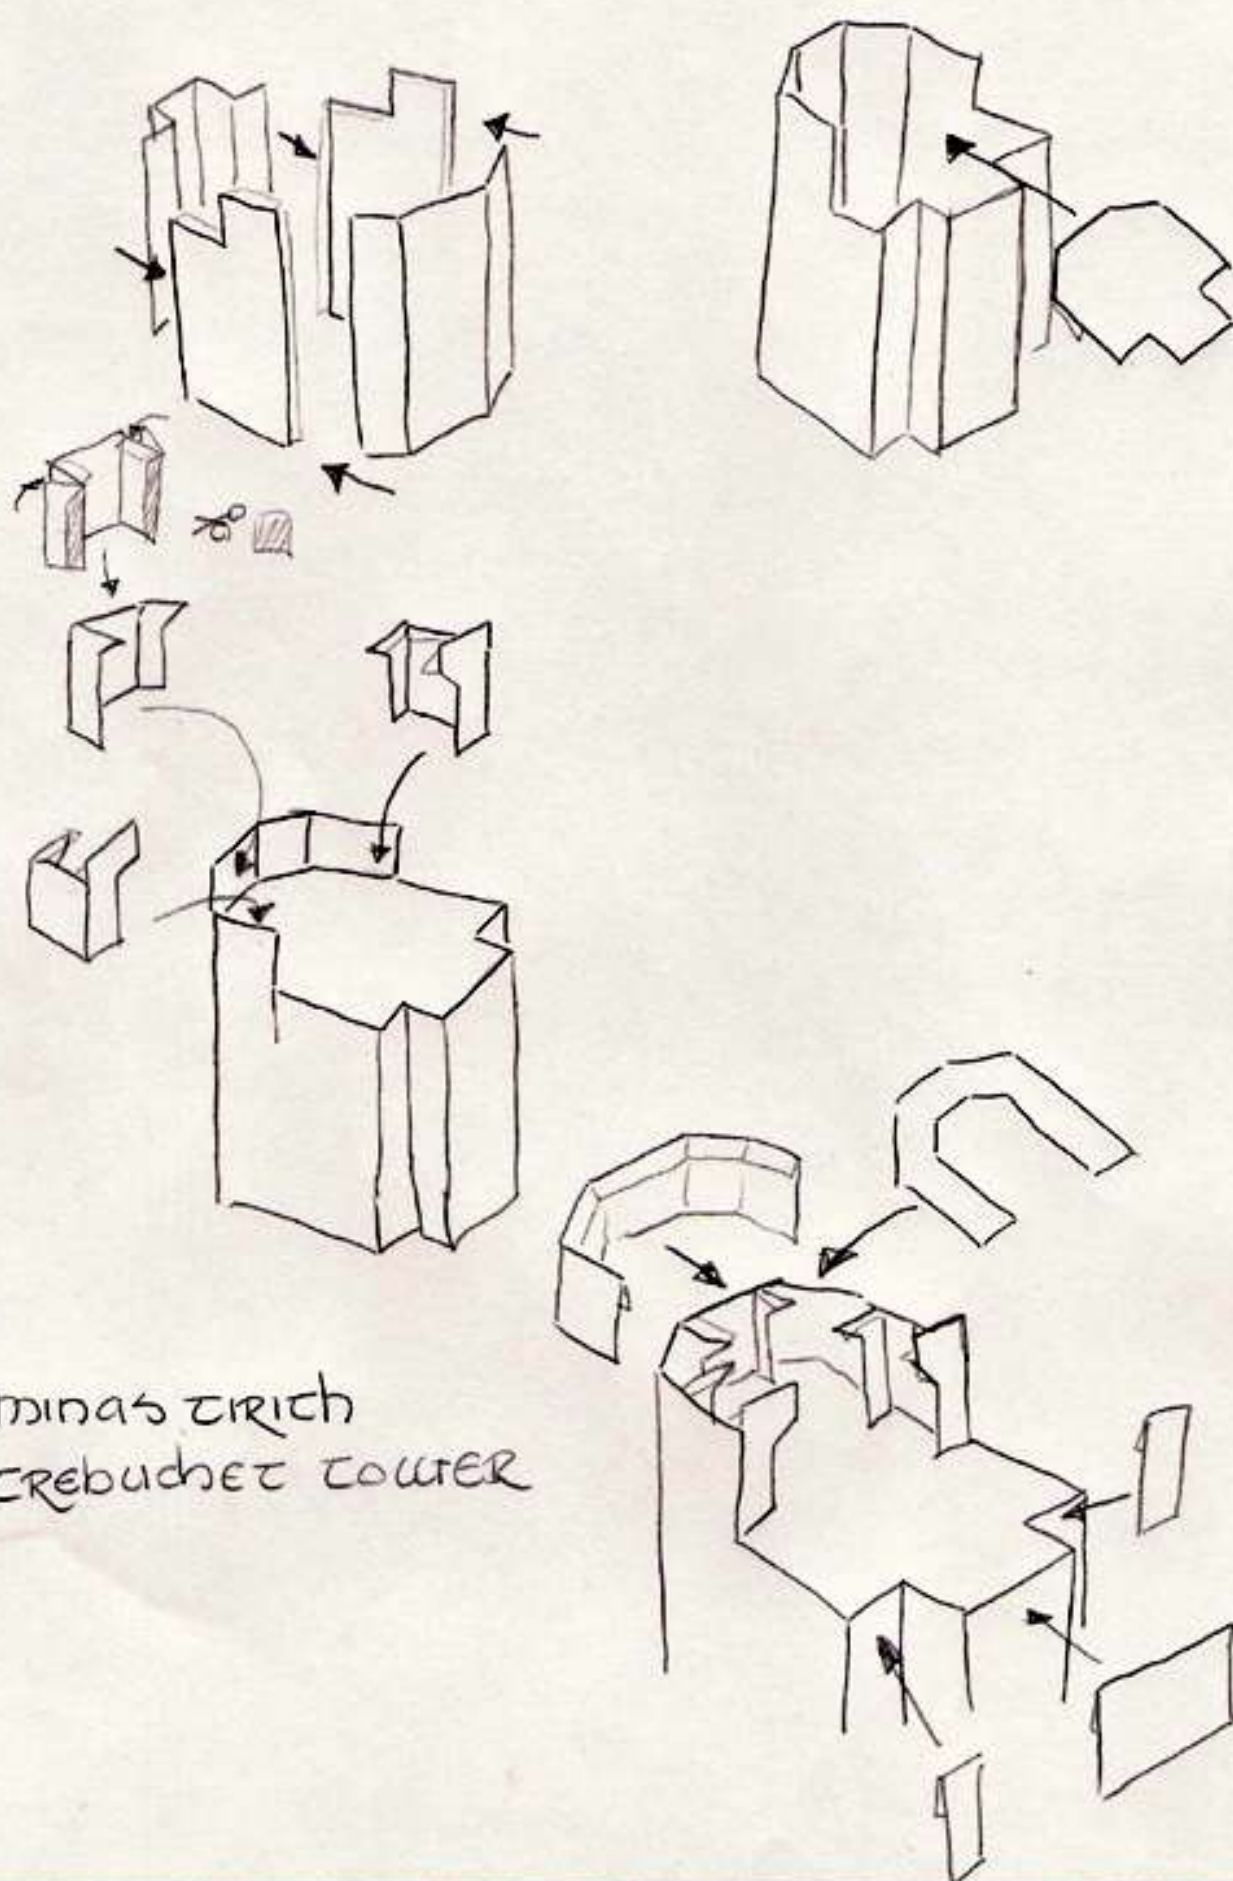 minas tirith
trebuchet tower